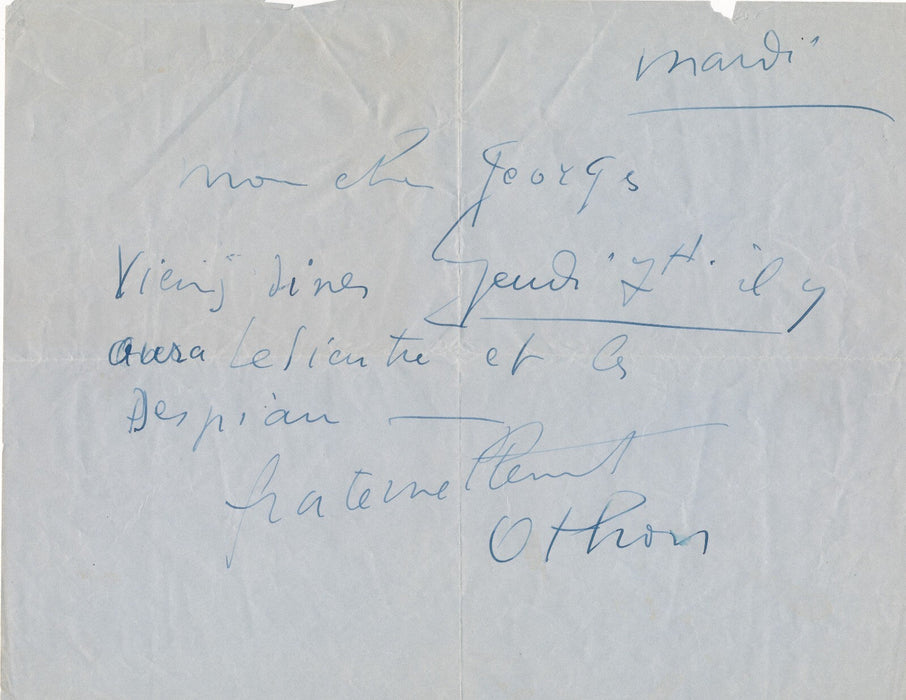 mardi
mon cher Georges
Viens diner Jeudi 7H. il y
aura et les
Despiau —
fraternellement
Othon